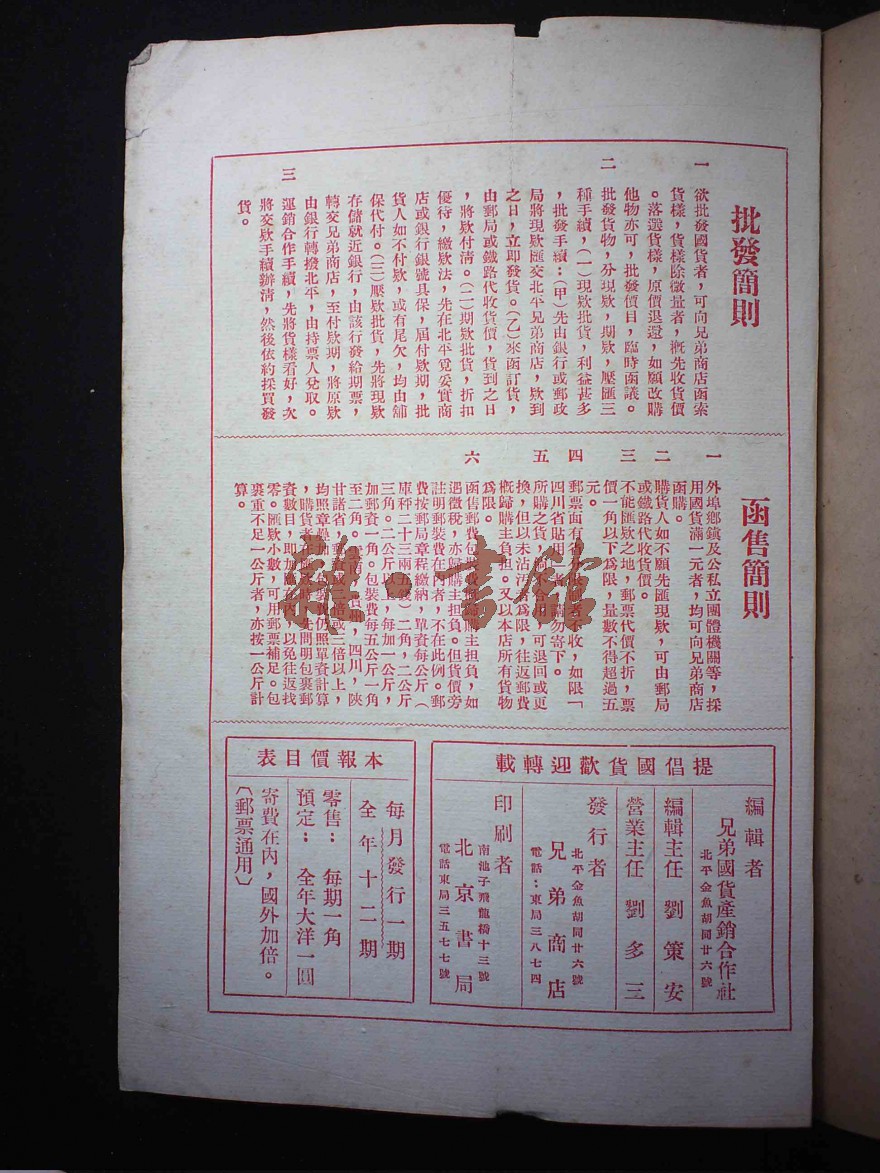 批發簡則
一 欲批發國貨者，可向兄弟商店函索
貨樣，貨樣除微量者，概先收貨價
。落選貨樣，原價退還，如願改購
他物亦可，批發價目，臨時函議。
二 批發貨物，分現欵，期欵，壓匯三
種手續，(一)現欵批貨，利益甚多
，批發手續：(甲)先由銀行或郵政
局將現欵匯交北平兄弟商店，欵到
之日，立即發貨。(乙)來函訂貨，
由郵局或鐵路代收貨價，貨到之日
，將欵付清。(二)期欵批貨，折扣
優待，繳欵法，先在北平覓妥實商
店或銀行銀號具保，屆付欵期，批
貨人如不付欵，或有尾欠，均由舖
保代付。(三)壓欵批貨，先將現欵
存儲就近銀行，由該行發給期票，
轉交兄弟商店，至付欵期，將原欵
由銀行轉撥北平，由持票人兌取。
三 運銷合作手續，先將貨樣看好，次
將交欵手續辦清，然後依約採買發
貨。
函售簡則
一 外埠鄉鎮及公私立團體機關等，採
用國貨滿一元者，均可向兄弟商店
函購。
二 購貨人如不願先匯現欵，可由郵局
或鐵路代收貨價。
三 不能匯欵之地，郵票代價不折，票
價一角以下為限，量數不得超過五
元。
四 郵票面有省
者不收，如限「
四川省貼用
請勿寄下。
五 所購之貨，倘不合用，可退回或更
換，但以未沾污者為限，往返郵費
概歸購主負担。又以本店所有貨物
為限。
六 函售郵費包裝費概歸購主担負，如
遇徵稅，亦歸購主担負。但貨價旁
註明郵裝費在內者，不在此例。郵
費按郵局章程繳納，單資每公斤(
庫秤二十三兩五錢)二角，二公斤
三角。二公斤以上，每加一公斤，
加郵資一角。包裝費每五公斤一角
至二角。雲南，貴州，四川，陝
甘諸省，郵資或二倍或三倍以上，
均照章疊加，包裝費仍照單資計算
，購貨者在匯欵時，先問明包裹郵
資數目，即加匯在內，以免往返找
零。匯欵小數，可用郵票補足。包
裹重不足一公斤者，亦按一公斤計
算。
提倡國貨歡迎轉載
編輯者
兄弟國貨產銷合作社
北平金魚胡同廿六號
編輯主任 劉策安
營業主任 劉多三
發行者
北平金魚胡同廿六號
兄弟商店
電話：東局三八七四
印刷者
南池子飛龍橋十三號
北京書局
電話東局三五七七號
本報價目表
每月發行一期
全年十二期
零售： 每期一角
預定： 全年大洋一圓
寄費在內，國外加倍。
(郵票通用)
雜·書館